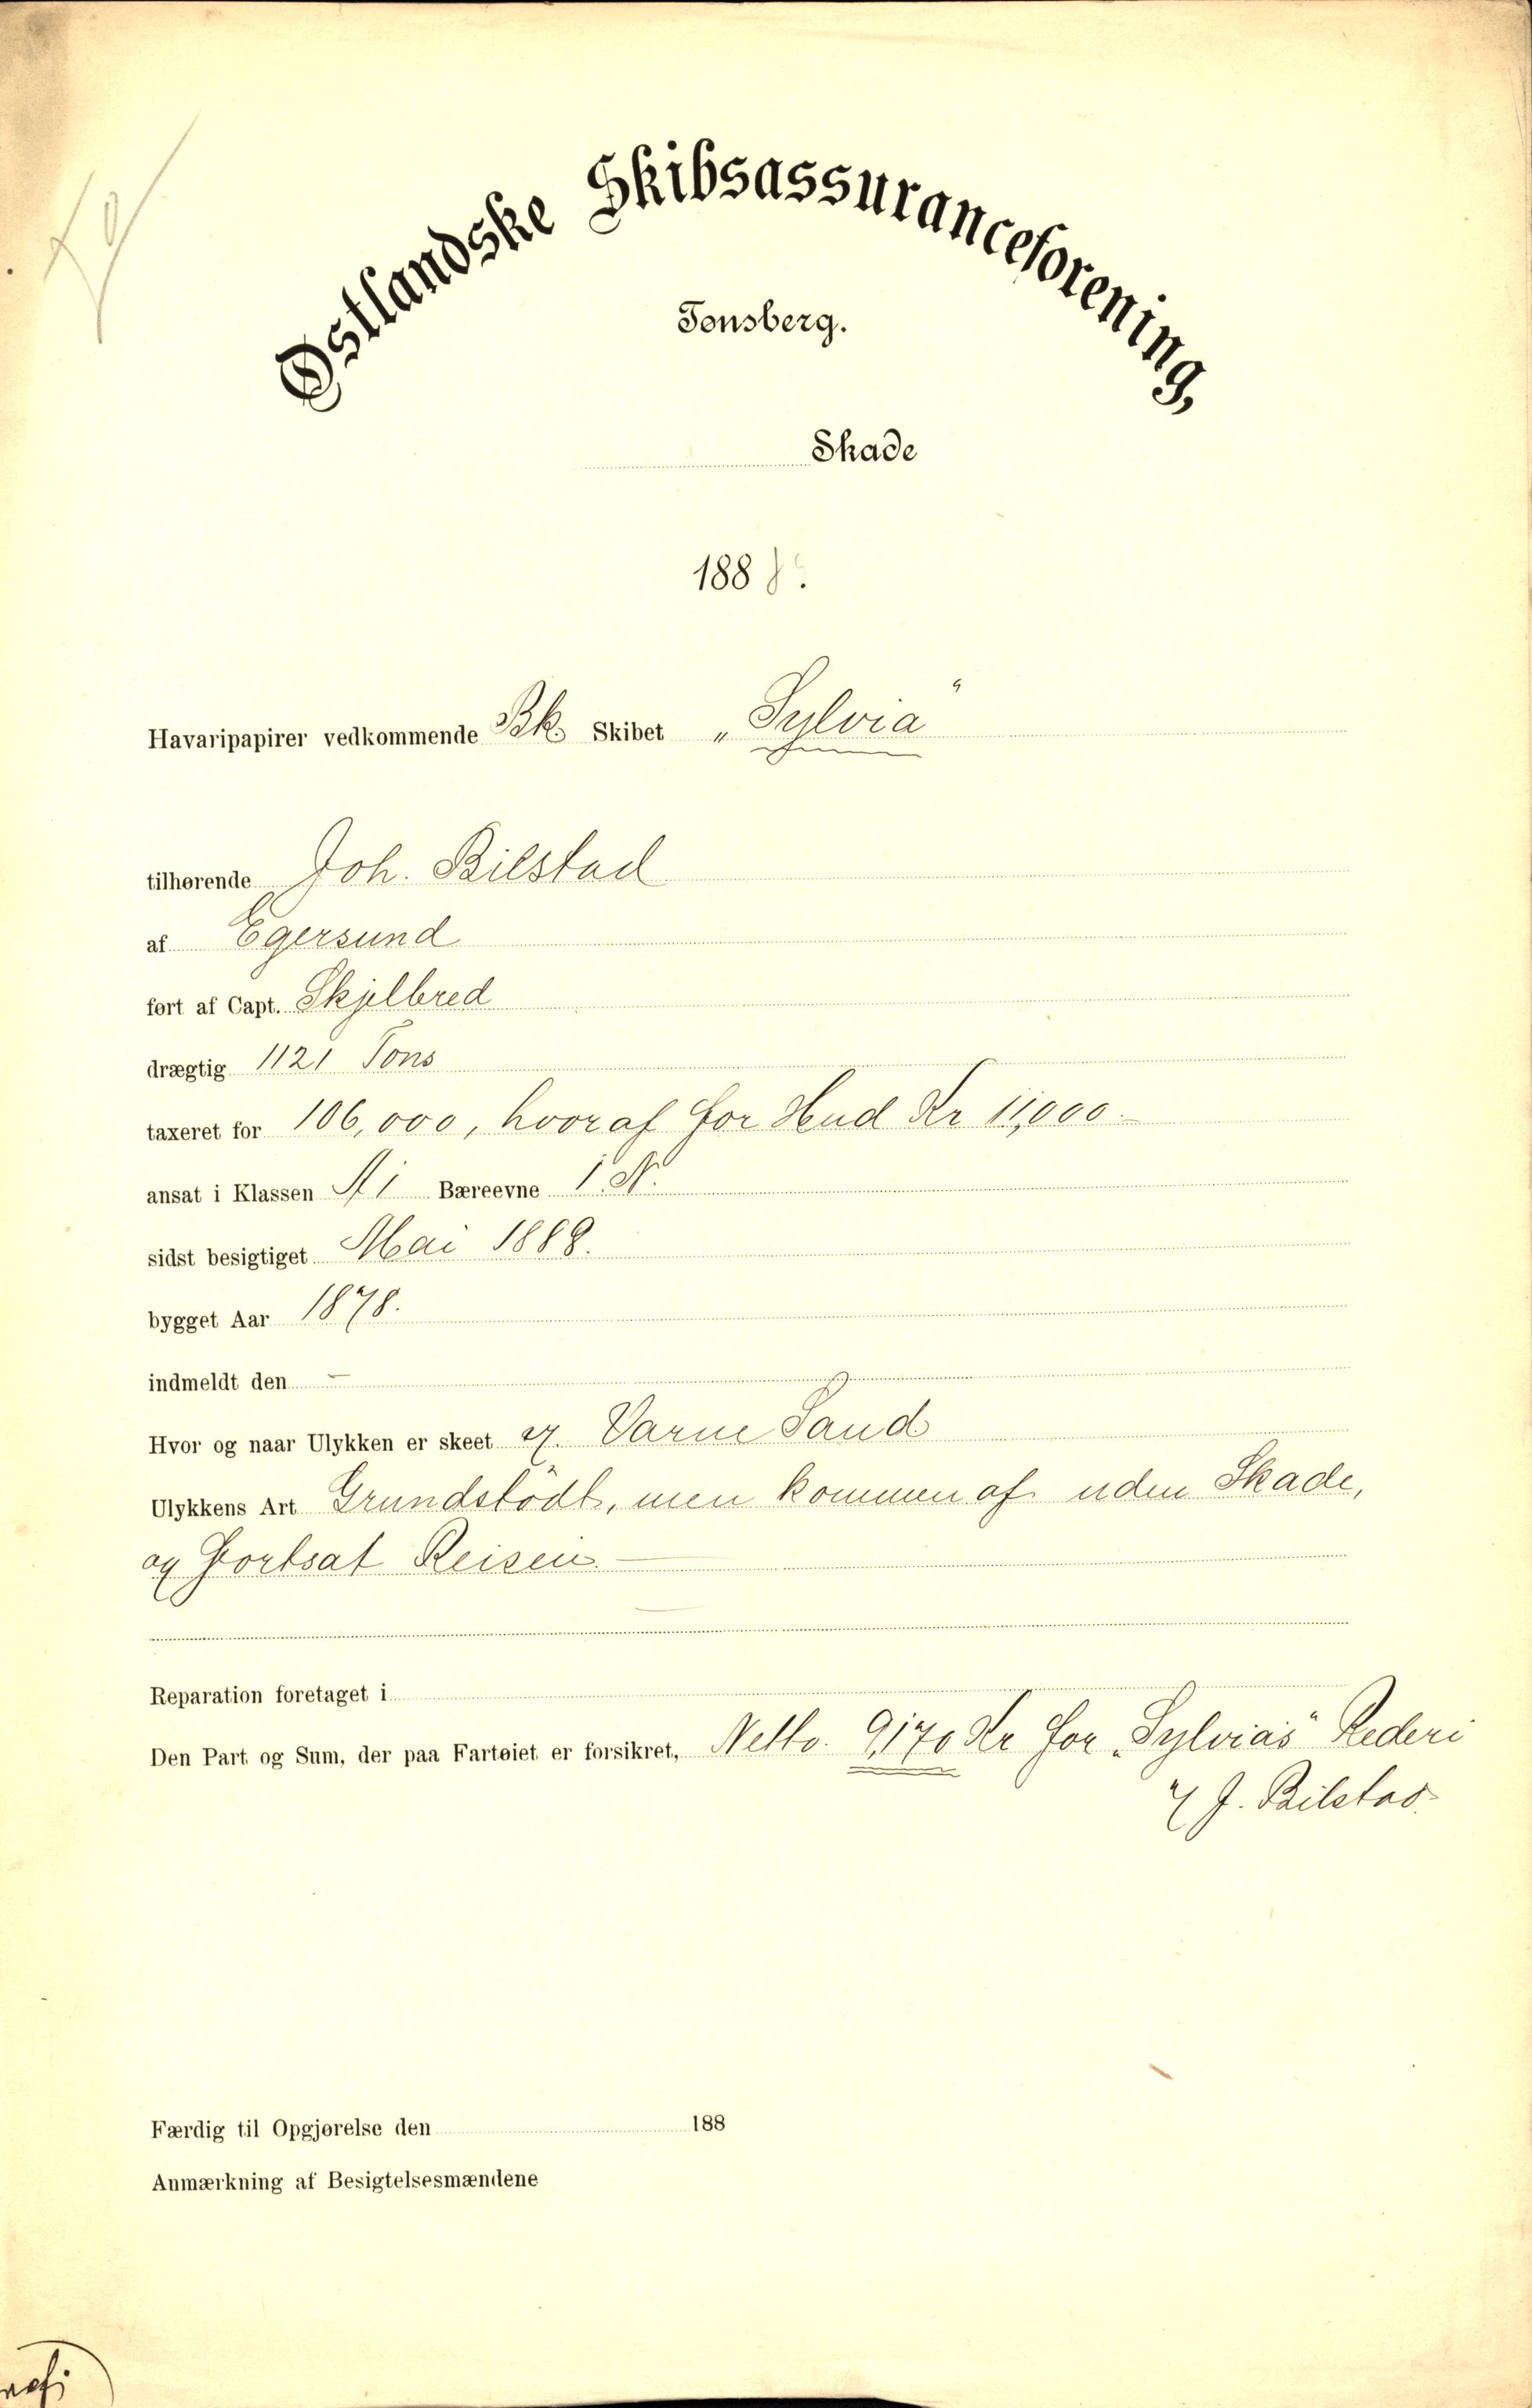 Østlandske Skibsassuranceforening,
Tønsberg.
Skade
1888.
Havaripapirer vedkommende Bk. Skibet „Sylvia“
tilhørende Joh. Bilstad
af Egersund
ført af Capt. Skjelbred
drægtig 1121 Tons
taxeret for 106,000, hvoraf for Hud Kr 11,000.—
ansat i Klassen A1 Bæreevne 1. N.
sidst besigtiget Mai 1888.
bygget Aar 1878.
indmeldt den —
Hvor og naar Ulykken er skeet Varne Sand
Ulykkens Art Grundstödt, men kommen af uden Skade,
og fortsat Reisen. —
Reparation foretaget i
Den Part og Sum, der paa Fartøiet er forsikret, Netto. 9,170 Kr for „Sylvias“ Rederi
J. Bilstad
Færdig til Opgjørelse den 188
Anmærkning af Besigtelsesmændene